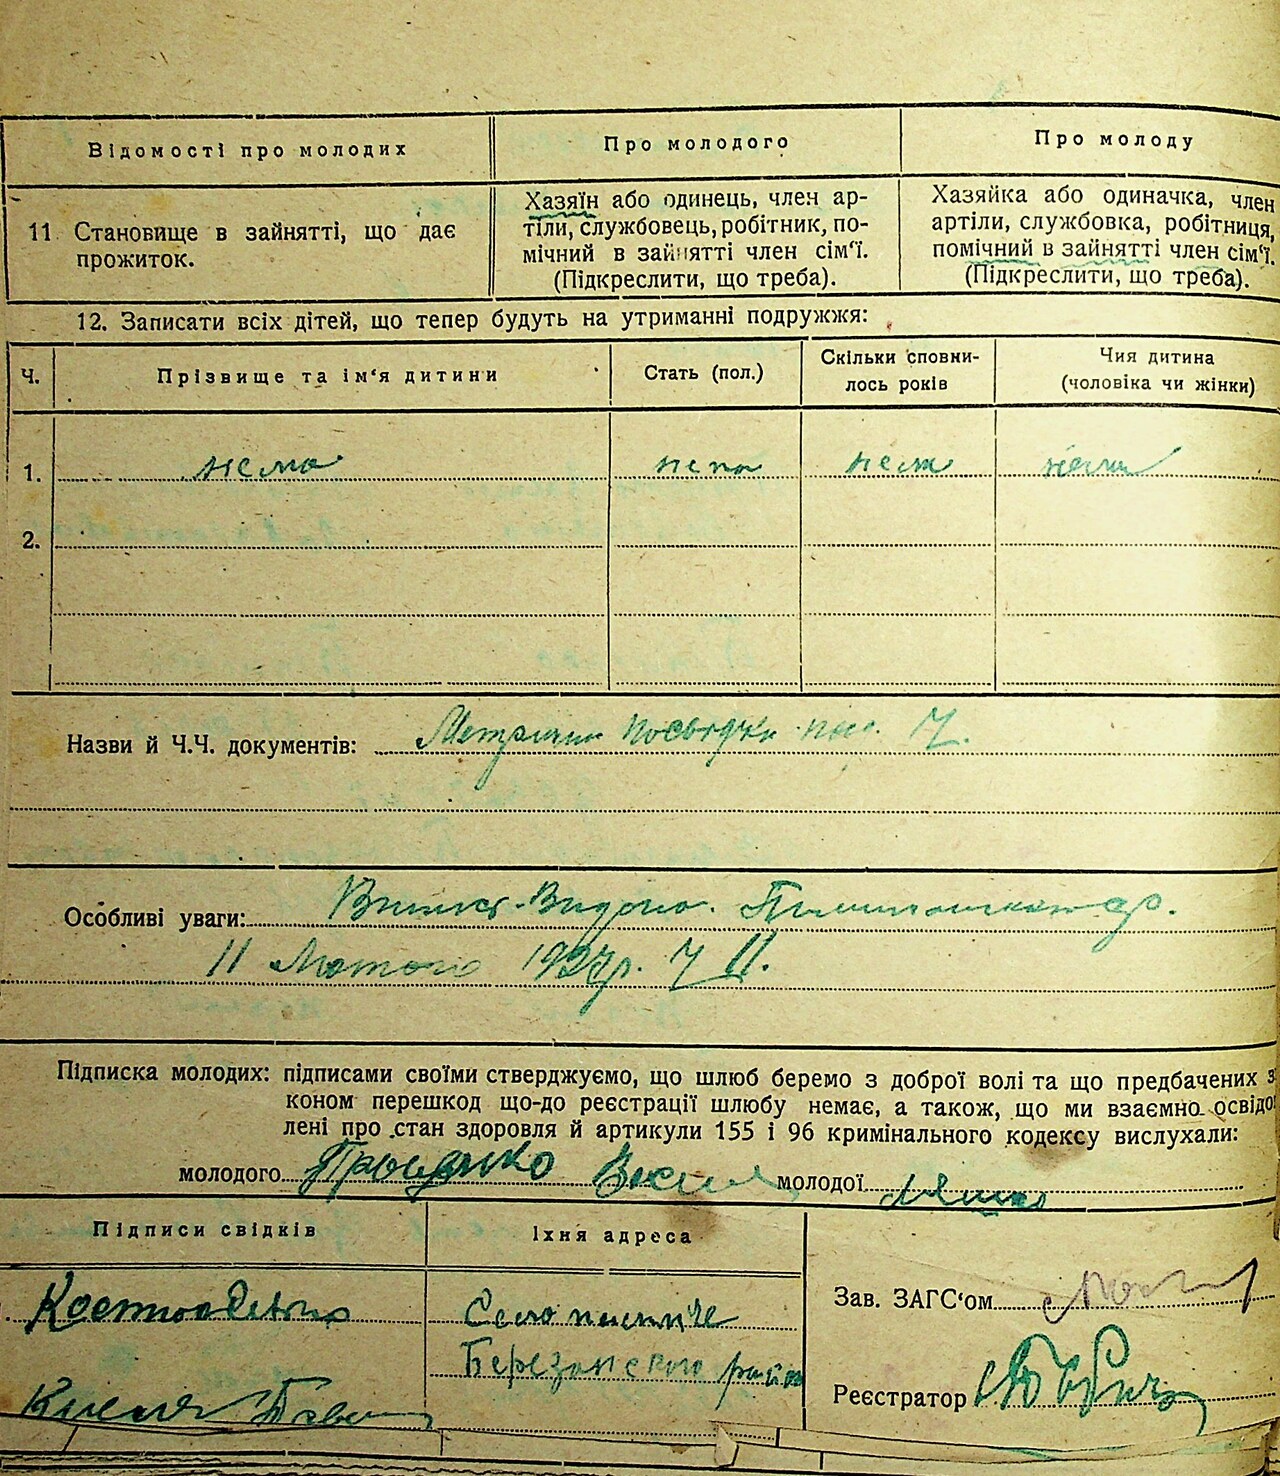 Відомості про молодих
Про молодого
Про молоду
11. Становище в зайнятті, що дає
прожиток.
Хазяїн або одинець, член ар-
тіли, службовець, робітник, по-
мічний в зайнятті член сім‘ї.
(Підкреслити, що треба).
Хазяйка або одиначка, член
артіли, службовка, робітниця,
помічний в зайнятті член сім‘ї.
(Підкреслити, що треба).
12. Записати всіх дітей, що тепер будуть на утриманні подружжя:
Ч.
Прізвище та ім‘я дитини
Стать (пол.)
Скільки сповни-
лось років
Чия дитина
(чоловіка чи жінки)
1. нема нема нема нема
2.
Назви й Ч.Ч. документів: посвідки
Особливі уваги: Виписъ Видано
11 Лютого 1927р. Ч 11.
Підписка молодих: підписами своїми стверджуємо, що шлюб беремо з доброї волі та що предбачених з
коном перешкод що-до реєстрації шлюбу немає, а також, що ми взаємно освідо
лені про стан здоровля й артикули 155 і 96 кримінального кодексу вислухали:
молодого молодої
Підписи свідків
Їхня адреса
Село
Березанского район
Зав. ЗАГС‘ом
Реєстратор